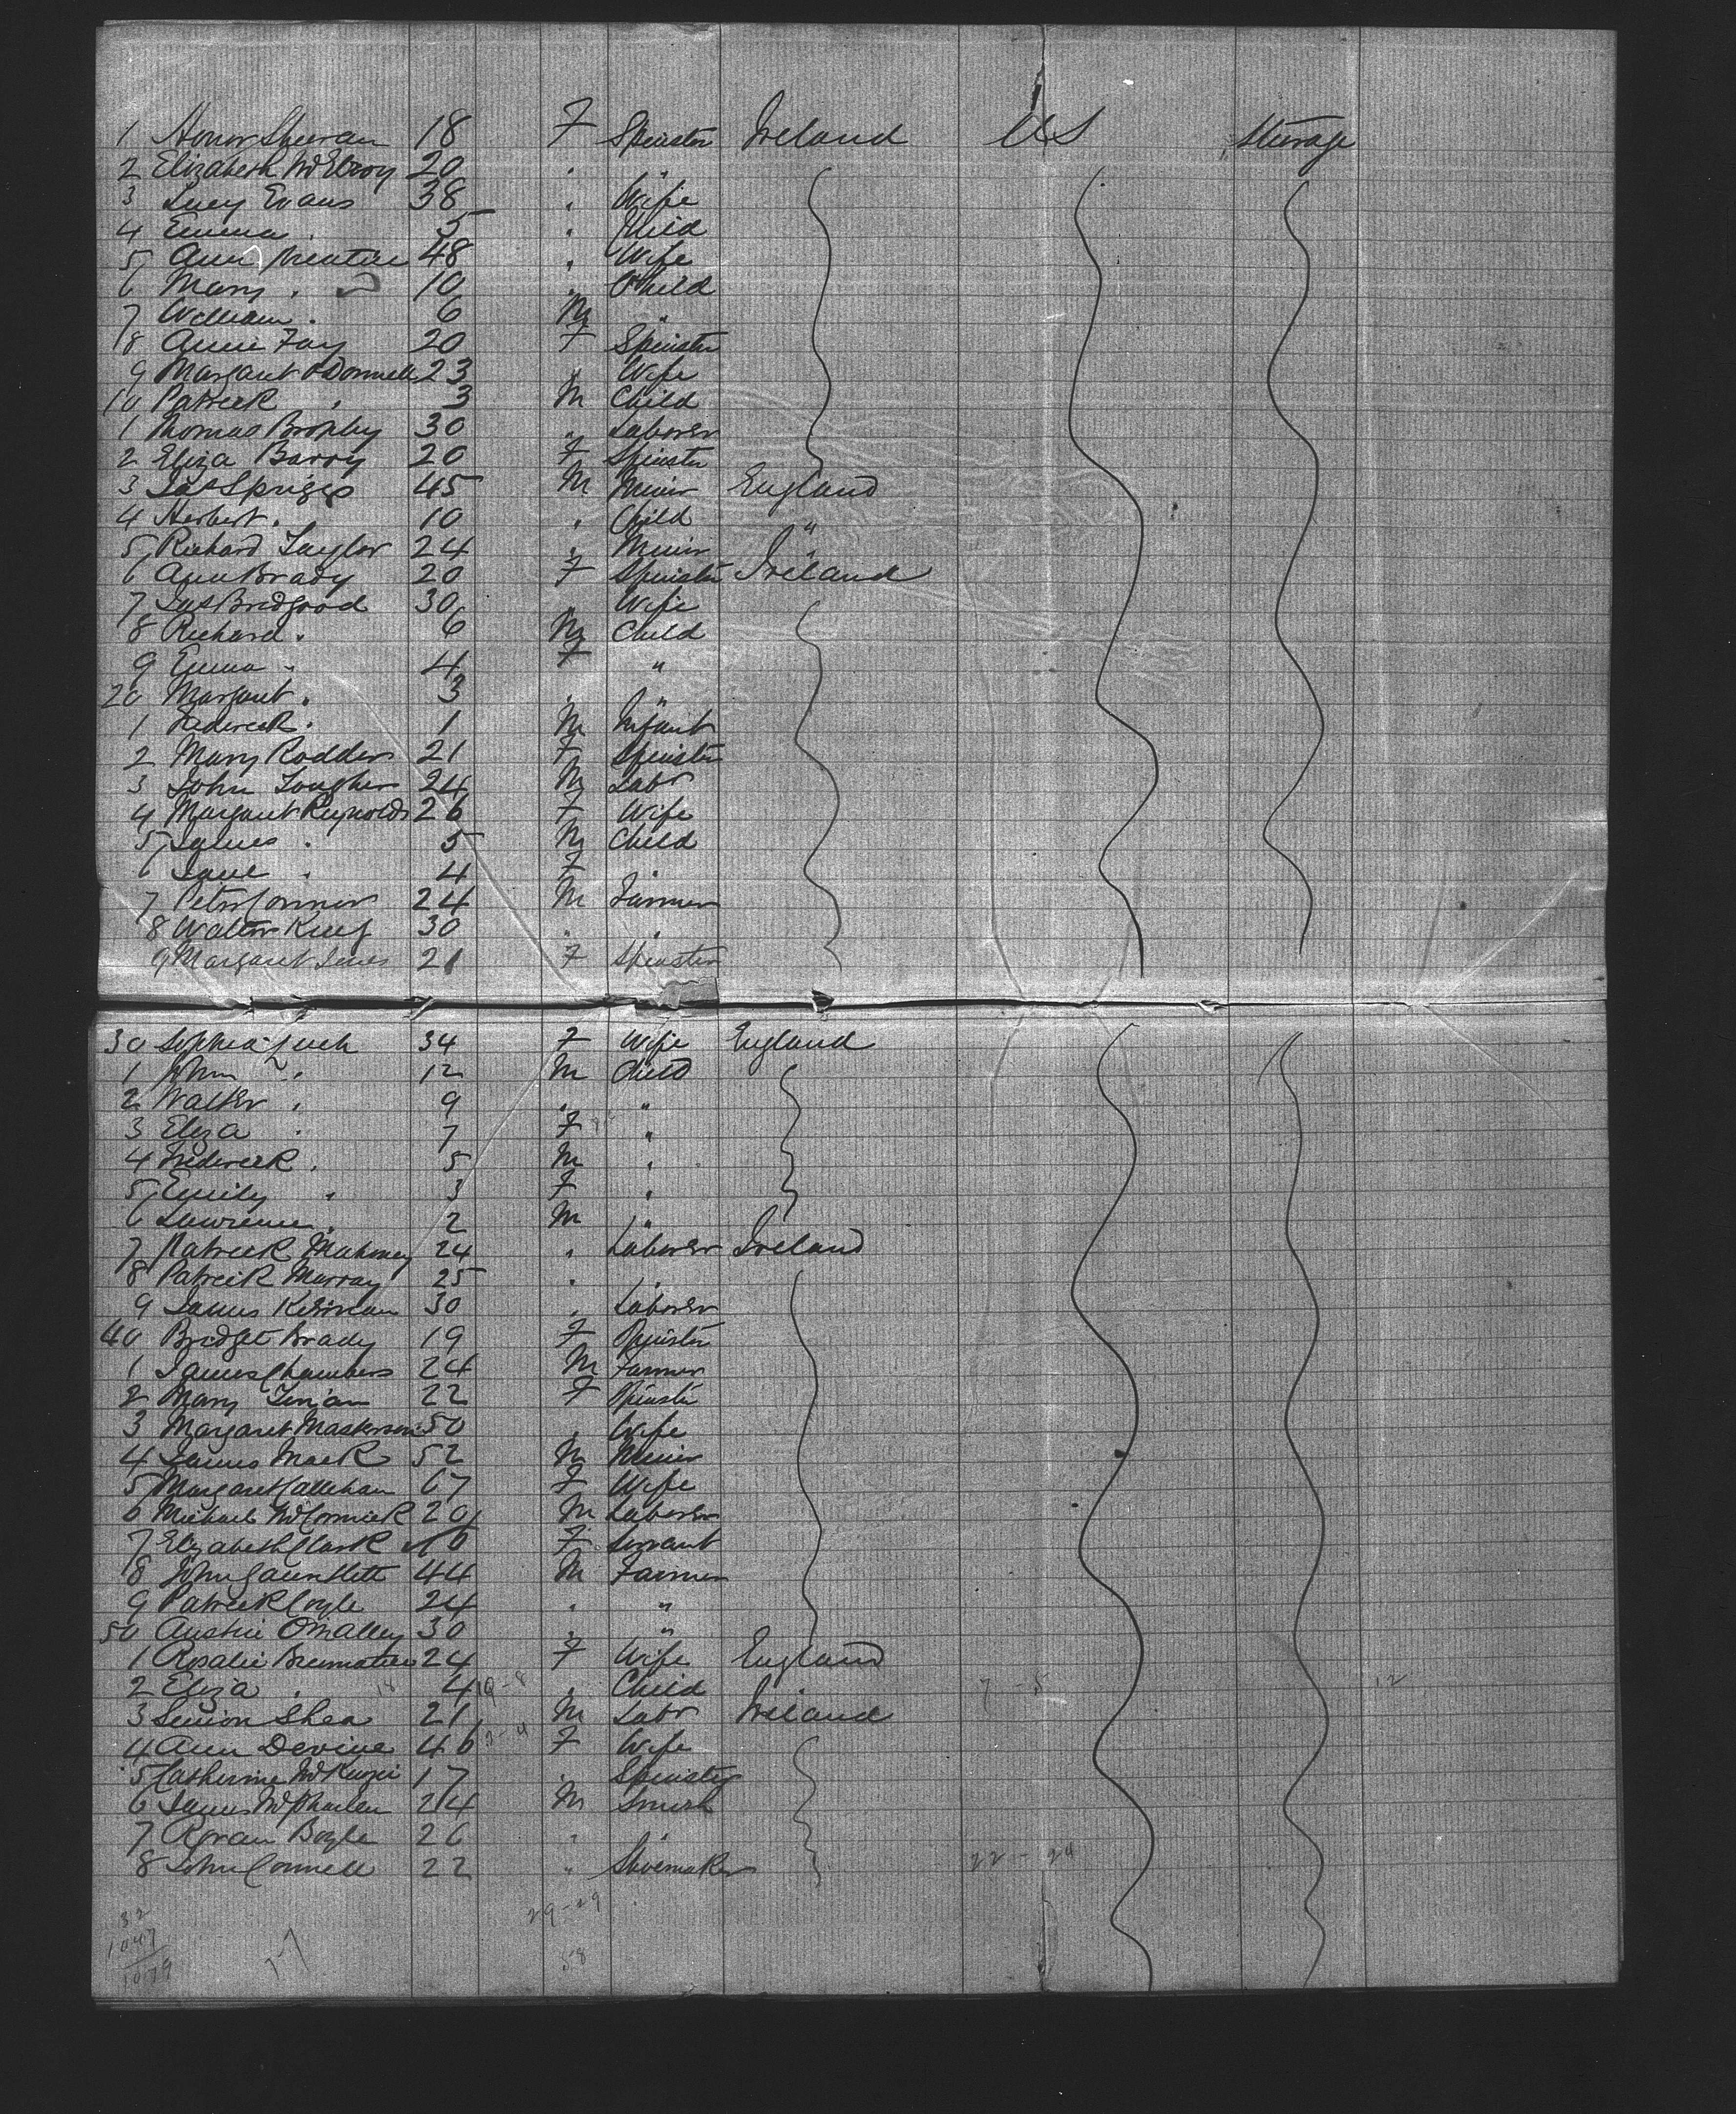 1 Honor Sheeran 18 F Spinster Ireland US Steerage
2 Elizabeth McElroy 20 " "
3 Lucy Evans 38 " Wife
4 Emma " 5 " Child
5 Ann 48 " Wife
6 Mary " 10 " Child
7 William " 6 M "
8 Annie Fay 20 F Spinster
9 Margaret O'Donnell 23 " Wife
10 Patrick " 3 M Child
1 Thomas Brophy 30 " Laborer
2 Eliza Barry 20 F Spinster
3 Jas Spriggs 45 M Miner England
4 Herbert " 10 " Child "
5 Richard Taylor 24 " Miner "
6 Ann Brady 20 F Spinster Ireland
7 Jas Bridgood 30 " Wife
8 Richard " 6 M Child
9 Emma " 4 F "
20 Margaret " 3 " "
1 Frederick " 1 M Infant
2 Mary Rodder 21 F Spinster
3 John Tougher 24 M Labr
4 Margaret Reynolds 26 F Wife
5 James " 5 M Child
6 Jane " 4 F "
7 Peter Connor 24 M Farmer
8 Walter Keef 30 " "
9 Margaret 21 F Spinster
30 Sophia 34 F Wife England
1 John " 12 M Child
2 Walter " 9 " "
3 Eliza " 7 F "
4 Frederick " 5 M "
5 Emily " 3 F "
6 Lawrence " 2 M "
7 Patrick Mahoney 24 " Laborer Ireland
8 Patrick Murray 25 " "
9 James Kiernan 30 " Laborer
40 Bridget Brady 19 F Spinster
1 James Chambers 24 M Farmer
2 Mary 22 F Spinster
3 Margaret Masterson 50 " Wife
4 James Mack 52 M Miner
5 Margaret Callehan 67 F Wife
6 Michael McCormick 20 M Laborer
7 Elizabeth Clark F Servant
8 John Gauntlett 44 M Farmer
9 Patrick Coyle 24 " "
50 Austin O'Malley 30 " "
1 Rosalie 24 F Wife England
2 Eliza " 18 4 19-8 " Child 7 - 5 12
3 Simon Shea 21 M Labr Ireland
4 Ann Devine 46 F Wife
5 Catherine McKenzie 17 " Spinster
6 James 24 M Smith
7 Boyle 26 " "
8 John Connell 22 " Shoemaker 22 - 24
32 29-29
1047
1079 58